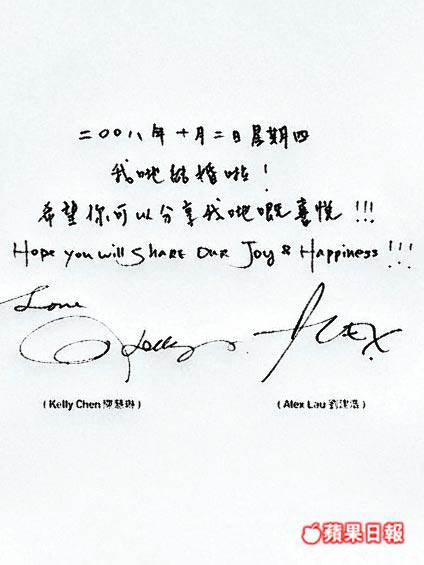 二00八年十月二日星期四
我哋結婚啦!
希望你可以分享我哋嘅喜悅!!!
Hope you will share our Joy & Happiness!!!
Love
Kelly ALEX
(Kelly Chen 陳慧琳) (Alex Lau 劉建浩)
蘋果日報